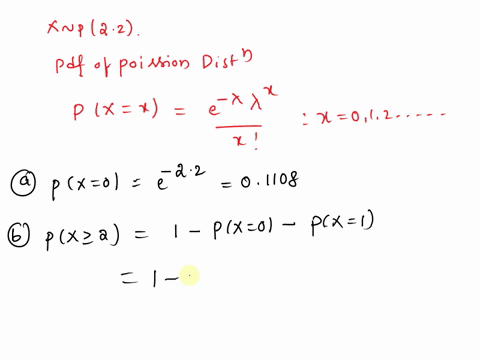 X~P(2.2).
Pdf of poission Distⁿ
P(X=x) = e^{-λ} λ^x / x! : x=0,1,2.....
ⓐ P(X=0) = e^{-2.2} = 0.1108
ⓑ P(X≥2) = 1 - P(X=0) - P(X=1)
= 1 -